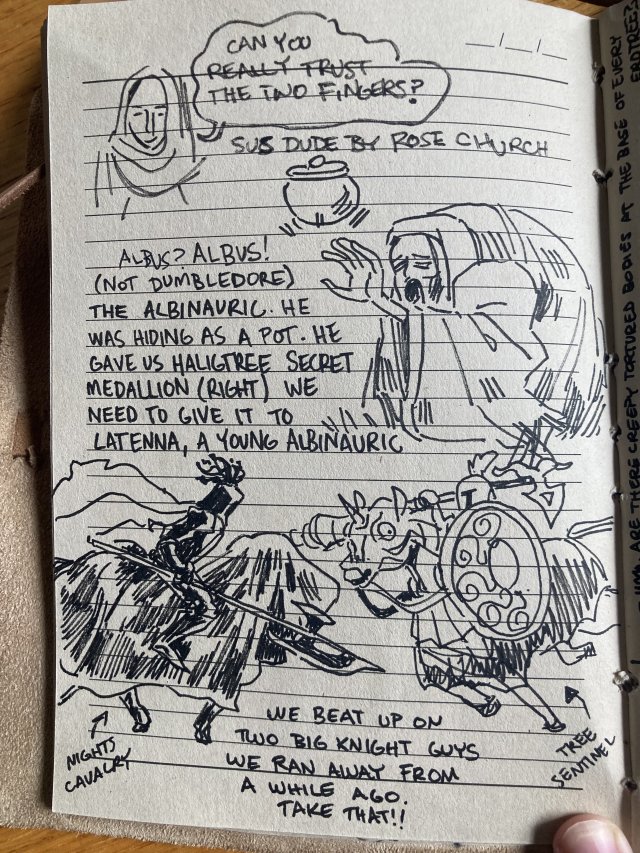 __/__/__
CAN YOU
REALLY TRUST
THE TWO FINGERS?
SUS DUDE BY ROSE CHURCH
ALBUS? ALBUS!
(NOT DUMBLEDORE)
THE ALBINAURIC. HE
WAS HIDING AS A POT. HE
GAVE US HALIGTREE SECRET
MEDALLION (RIGHT) WE
NEED TO GIVE IT TO
LATENNA, A YOUNG ALBINAURIC
NIGHTS
CAVALRY
WE BEAT UP ON
TWO BIG KNIGHT GUYS
WE RAN AWAY FROM
A WHILE AGO.
TAKE THAT!!
TREE
SENTINEL
ARE THERE CREEPY TORTURED BODIES AT THE BASE OF EVERY